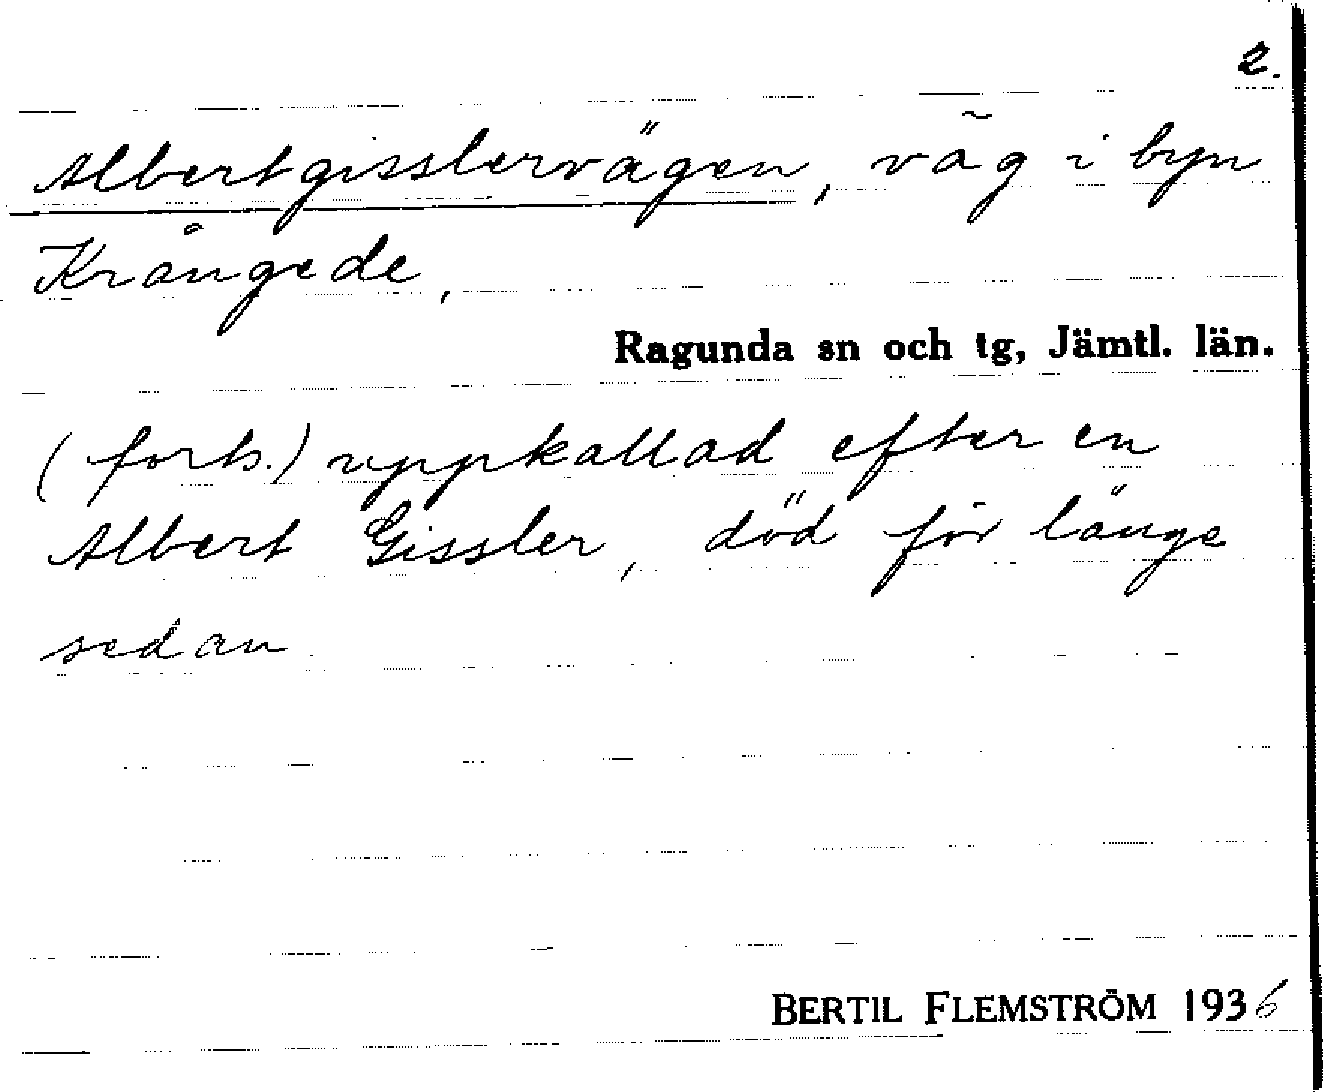 2.
Albertgisslervägen, väg i byn
Krångede,
Ragunda sn och tg, Jämtl. län.
(forts.) uppkallad efter en
Albert Gissler, död för länge
sedan
BERTIL FLEMSTRÖM 1936